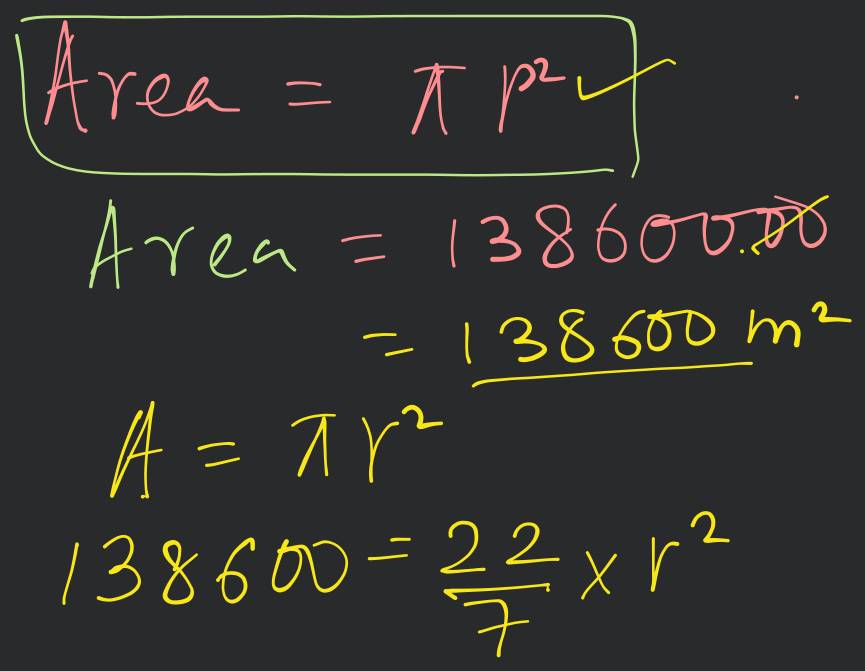 Area = π r²
Area = 138600.00
= 138600 m²
A = πr²
138600 = 22/7 × r²